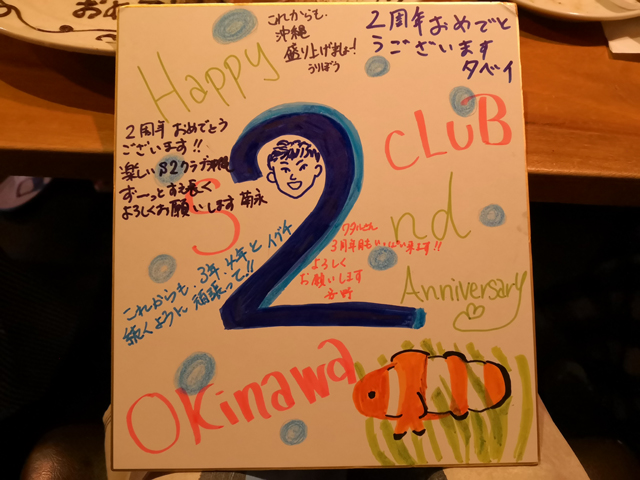 おめ
Happy
これからも、
沖縄
盛り上げましょー!
うりぼう
2周年おめでと
うございます
タベイ
2周年おめでとう
ございます!!
楽しいS2クラブ沖縄
ずーっと末長く
よろしくお願いします 菊永
S
2
CLUB
nd
Anniversary
3周年目も
よろしく
お願いします
これからも、3年、4年と イグチ
続くように 頑張って!!
Okinawa